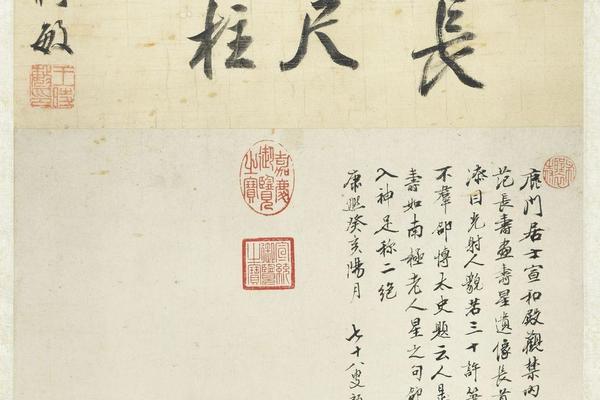 長尺柱
敏
鹿門居士宣和殿觀禁內
范長壽畫壽星遺像長首
漆目光射人貌若三十許
不羣邵博太史題云人是
壽如南極老人星之句
入神足稱二絕
康熙癸亥陽月 七十八叟
嘉慶御覽之寶
宣統御覽之寶